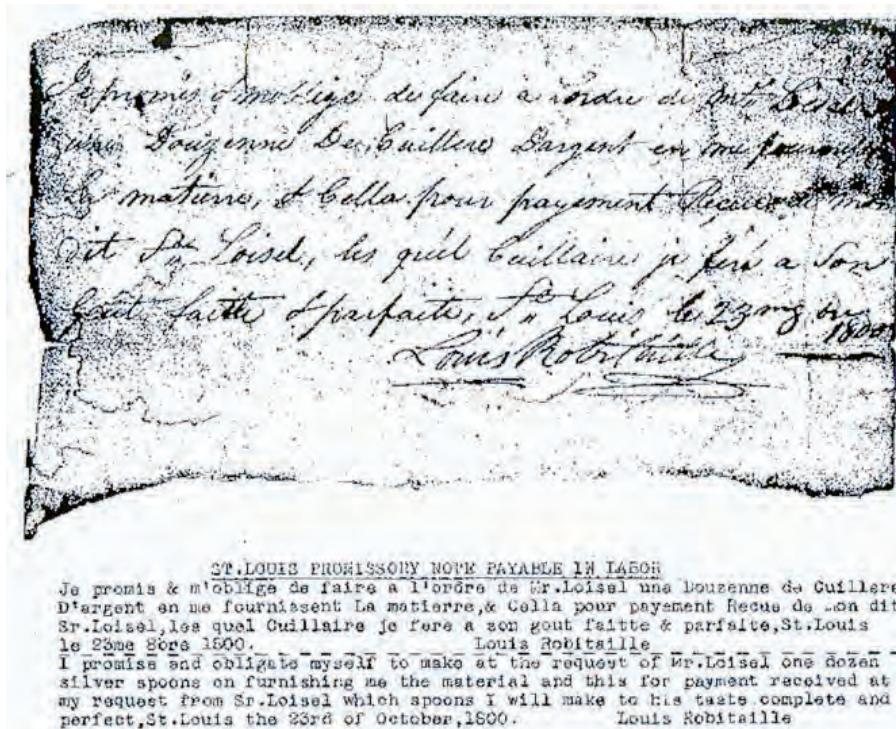 Je promis & m'oblige de faire a l'ordre de Mr. Loisel
une Douzenne De Cuillere D'argent en me fournissent
La matierre, & Cella pour payement Reçue de mon
dit Sr. Loisel, les quel Cuillaire je feré a Son
gout faitte & parfaite, St. Louis le 23me
1800
Louis Robitaille
ST.LOUIS PROMISSORY NOTE PAYABLE IN LABOR
Je promis & m'oblige de faire a l'ordre de Mr.Loisel une Douzenne de Cuillere
D'argent en me fournissent La matierre,& Cella pour payement Recue de mon dit
Sr.Loisel,les quel Cuillaire je fere a son gout faitte & parfaite,St.Louis
le 23me 8bre 1800. Louis Robitaille
I promise and obligate myself to make at the request of Mr.Loisel one dozen
silver spoons on furnishing me the material and this for payment received at
my request from Sr.Loisel which spoons I will make to his taste complete and
perfect,St.Louis the 23rd of October,1800. Louis Robitaille